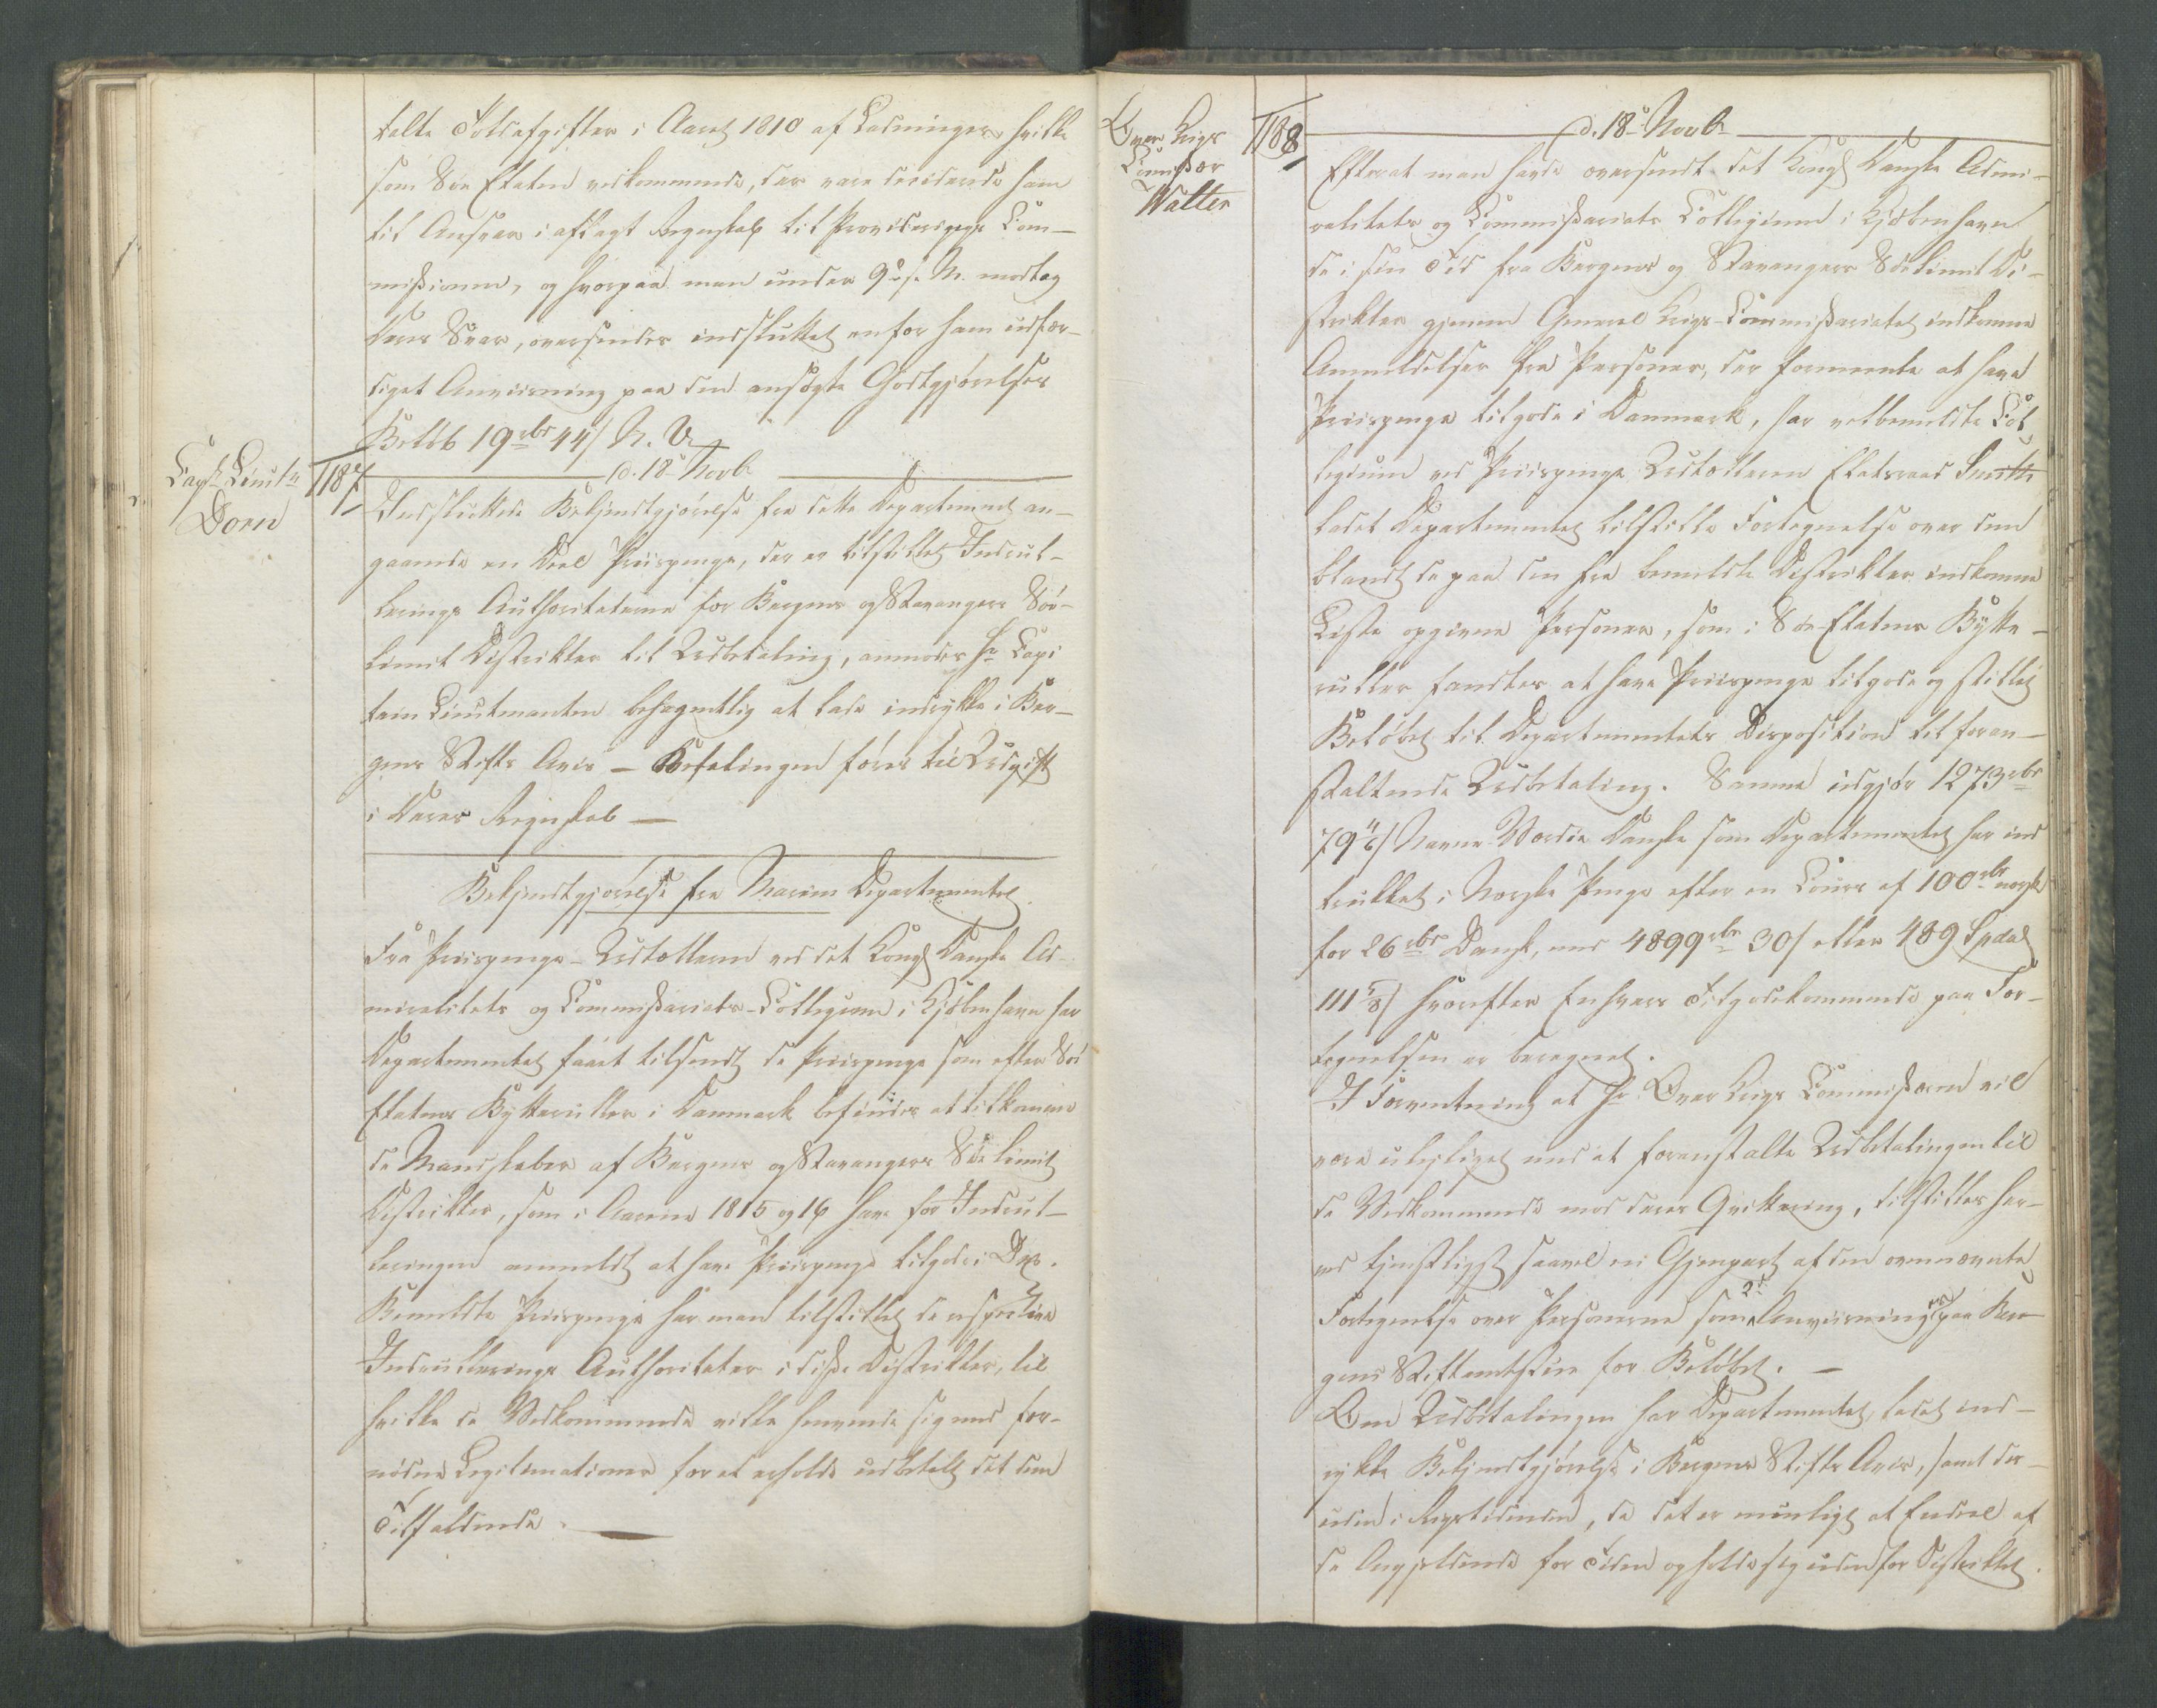 talte Toldafgifter i Aaret 1810 af Ladninger, hvilke
som Søe Etaten vedkommende, der vare debiterede ham
til Ansvar i aflagt Regnskab til Provideringgs Com-
mißionen, og hvorpaa man under 9de s. M. modtog
Deres Svar, oversendes indsluttet en for ham udfær-
diget Anviisning paa den ansøgte Godtgjørelses
Beløb 19 rbd 44 s N. V.
Capt Lieutn
Dorn
1187
d. 18de Novbr
Indsluttede Bekjendtgjørelse fra dette Departement an-
gaaende en Deel Priispenge, der er tilstillet Indrul-
lerings Authoriteterne for Bergens og Stavangers Søe-
limit Distrikter til Udbetaling, anmodes Hr Capi
tain Lieutenanten behageligt at lade indrykke i Ber-
gens Stifts Avis - Betalingen føres til Udgift
i Deres Regnskab -
Bekjendtgjørelse fra Marine Departementet.
Fra Priispenge-Udtælleren ved det Kongl Danske Ad-
miralitets og Commißariats-Collegium i Kjøbenhavn har
Departementet faaet tilsendt de Priispenge som efter Søe
Etatens Bytteruller i Danmark befindes at tilkomme
de Mandskaber af Bergens og Stavangers Søe limit
Distrikter, som i Aarene 1815 og 16 have for Indrul-
leringen anmeldt at have Priispenge tilgode i Dk.
Bemeldte Priispenge har man tilstillet de respective
Indrullerings Authoriteter i diße Distrikter, til
hvilke de Vedkommende ville henvende sig med for-
nødne Legitimationer for at erholde udbetalt det dem
Tilfaldende. -
Over Krigs
Commißær
Walter
1188
d. 18de Novbr
Efterat man havde oversendt det Kongl Danske Admi-
ralitets og Commißariats Collegium i Kjøbenhavn
de i sin Tid fra Bergens og Stavangers Søe limit Di-
strikter gjennem General Krigs-Commißariatet indkomne
Anmeldelser fra Personer, der formeente at have
Priispenge tilgode i Danmark, har velbemeldte Col
legium ved Priispenge Udtælleren Etatsraad Smith
ladet Departementet tilstille Fortegnelse over dem
blandt de paa den fra bemeldte Distrikter indkomne
Liste opgivne Personer, som i Søe-Etatens Bytte-
ruller fandtes at have Priispenge tilgode og stillet
Beløbet til Departementets Disposition til foran-
staltende Udbetaling. Samme udgjør 1273 rbd
79 s Navne Værdie Danske som Departementet har ind
trukket i Norske Penge efter en Cours af 100 rbd norske
for 26 rbd Dansk, med 4899 rbd 30 s eller 489 Spdal
111 s hvorefter Enhvers Tilgodekommende paa For-
tegnelsen er beregnet.
I Forventning at Hr Over Krigs Commißæren vil
være uleiliget med at foranstalte Udbetalingen til
de Vedkommende mod deres Qvittering, tilstilles her-
ved tjenstligst saavel en Gjenpart af den ovennævnte
Fortegnelse over Personerne som 2de Anviisninger paa Ber-
gens Stiftamtstue for Beløbet. -
Om Udbetalingen har Departementet ladet ind-
rykke Bekjendtgjørelse i Bergens Stifts Avis, samt des-
uden i Rigstidenden, da det er mueligt at Endeel af
de Angjeldende for Tiden opholde sig udenfor Distriktet.